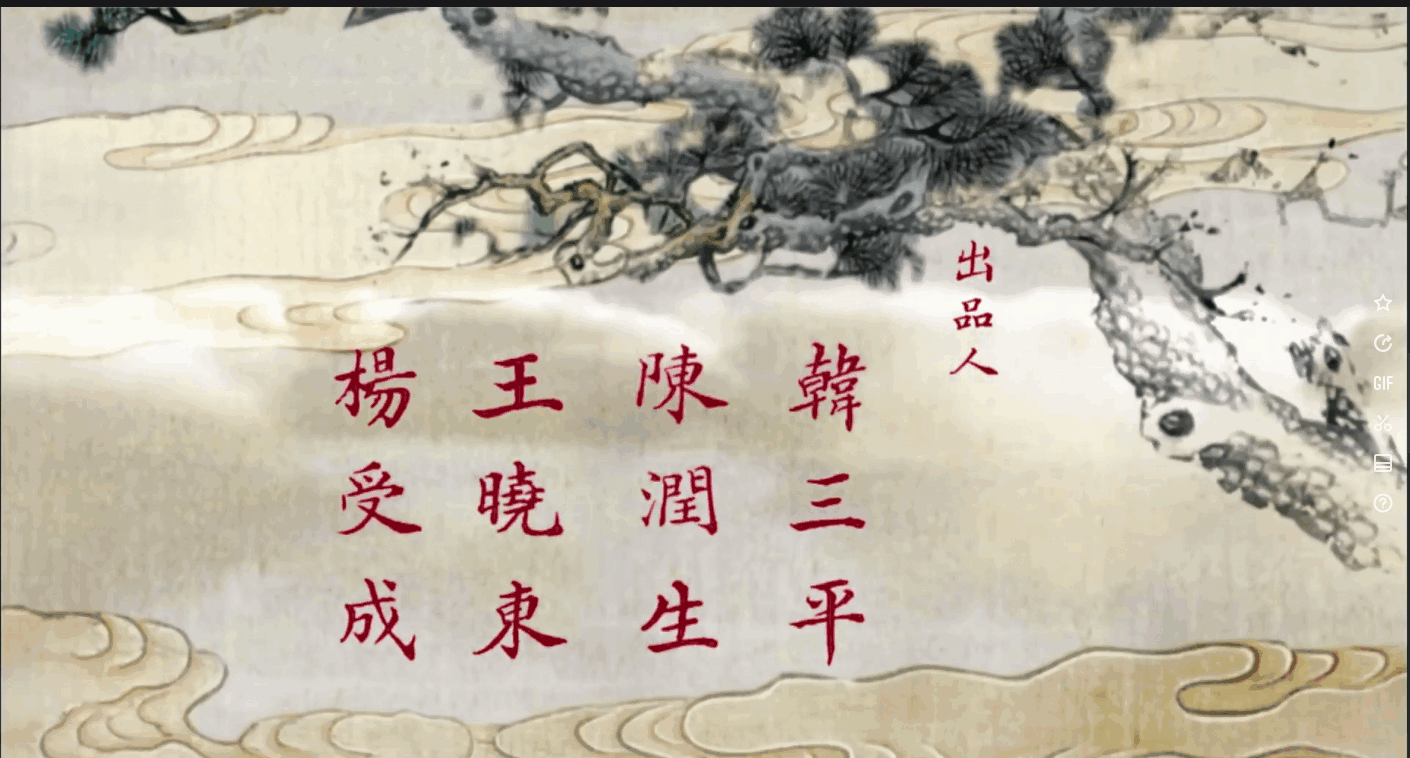 出品人
韓三平
陳潤生
王曉東
楊受成
GIF